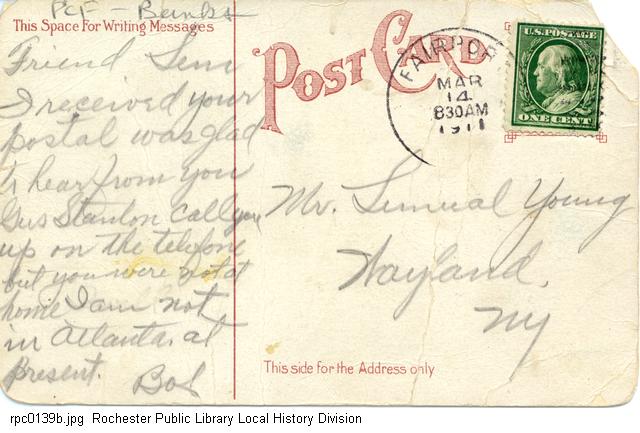 PCF - Banks
This Space For Writing Messages
POST CARD
FAIRPOR
MAR
14
830AM
1911
U.S. POSTAGE
ONE CENT
Friend Lem
I received your
postal was glad
t hear from you
Gus Stanton call you
up on the telefone
but you were not at
home I am not
in Atlanta at
present.
Bob
Mr. Lemual Young
Wayland,
NY
This side for the Address only
rpc0139b.jpg Rochester Public Library Local History Division